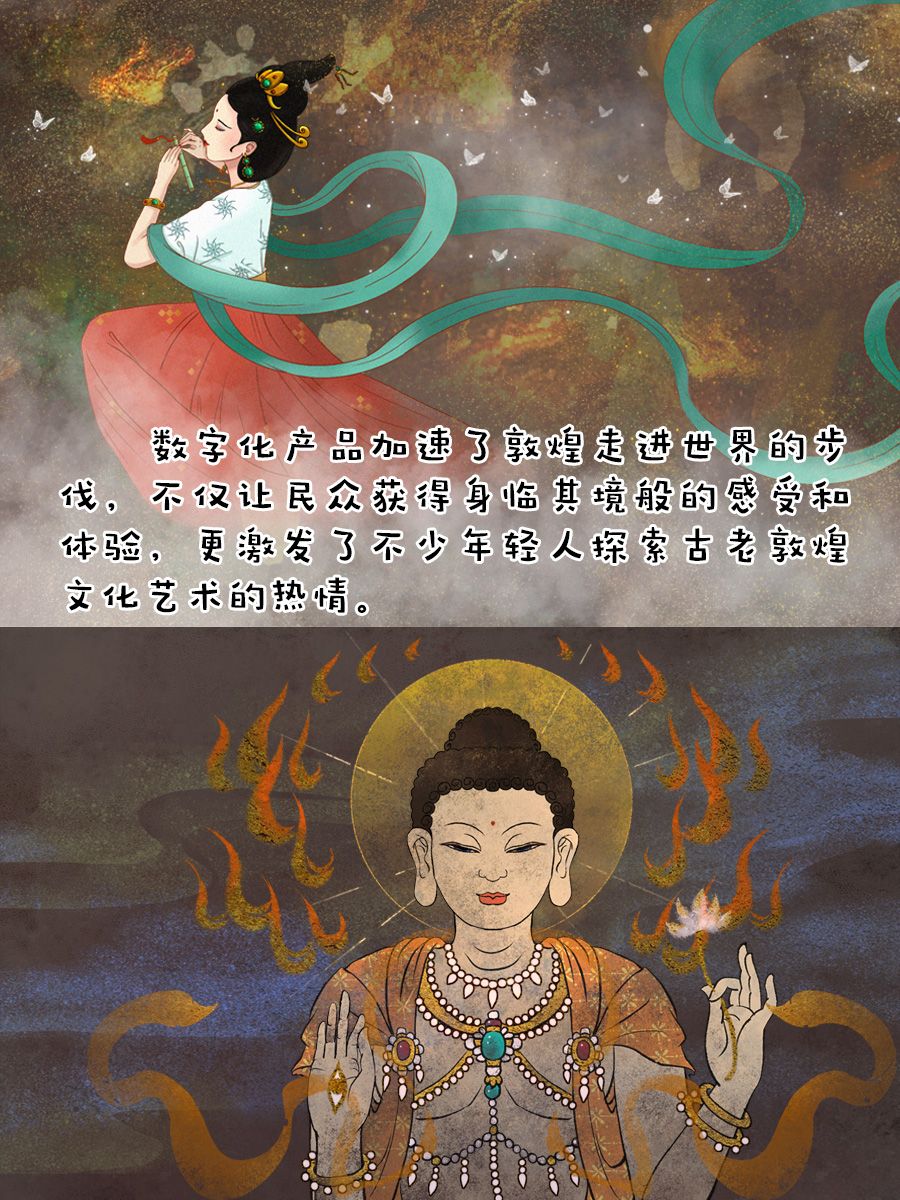 数字化产品加速了敦煌走进世界的步
伐，不仅让民众获得身临其境般的感受和
体验，更激发了不少年轻人探索古老敦煌
文化艺术的热情。